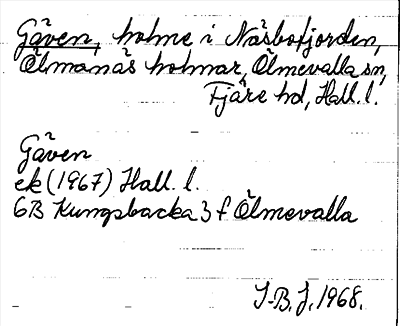 Gåven, holme i Näsbofjorden,
Ölmanäs holmar, Ölmevalla sn,
Fjäre hd, Hall. l.
Gåven
ek (1967) Hall. l.
6B Kungsbacka 3 f Ölmevalla
I-B. J. 1968.